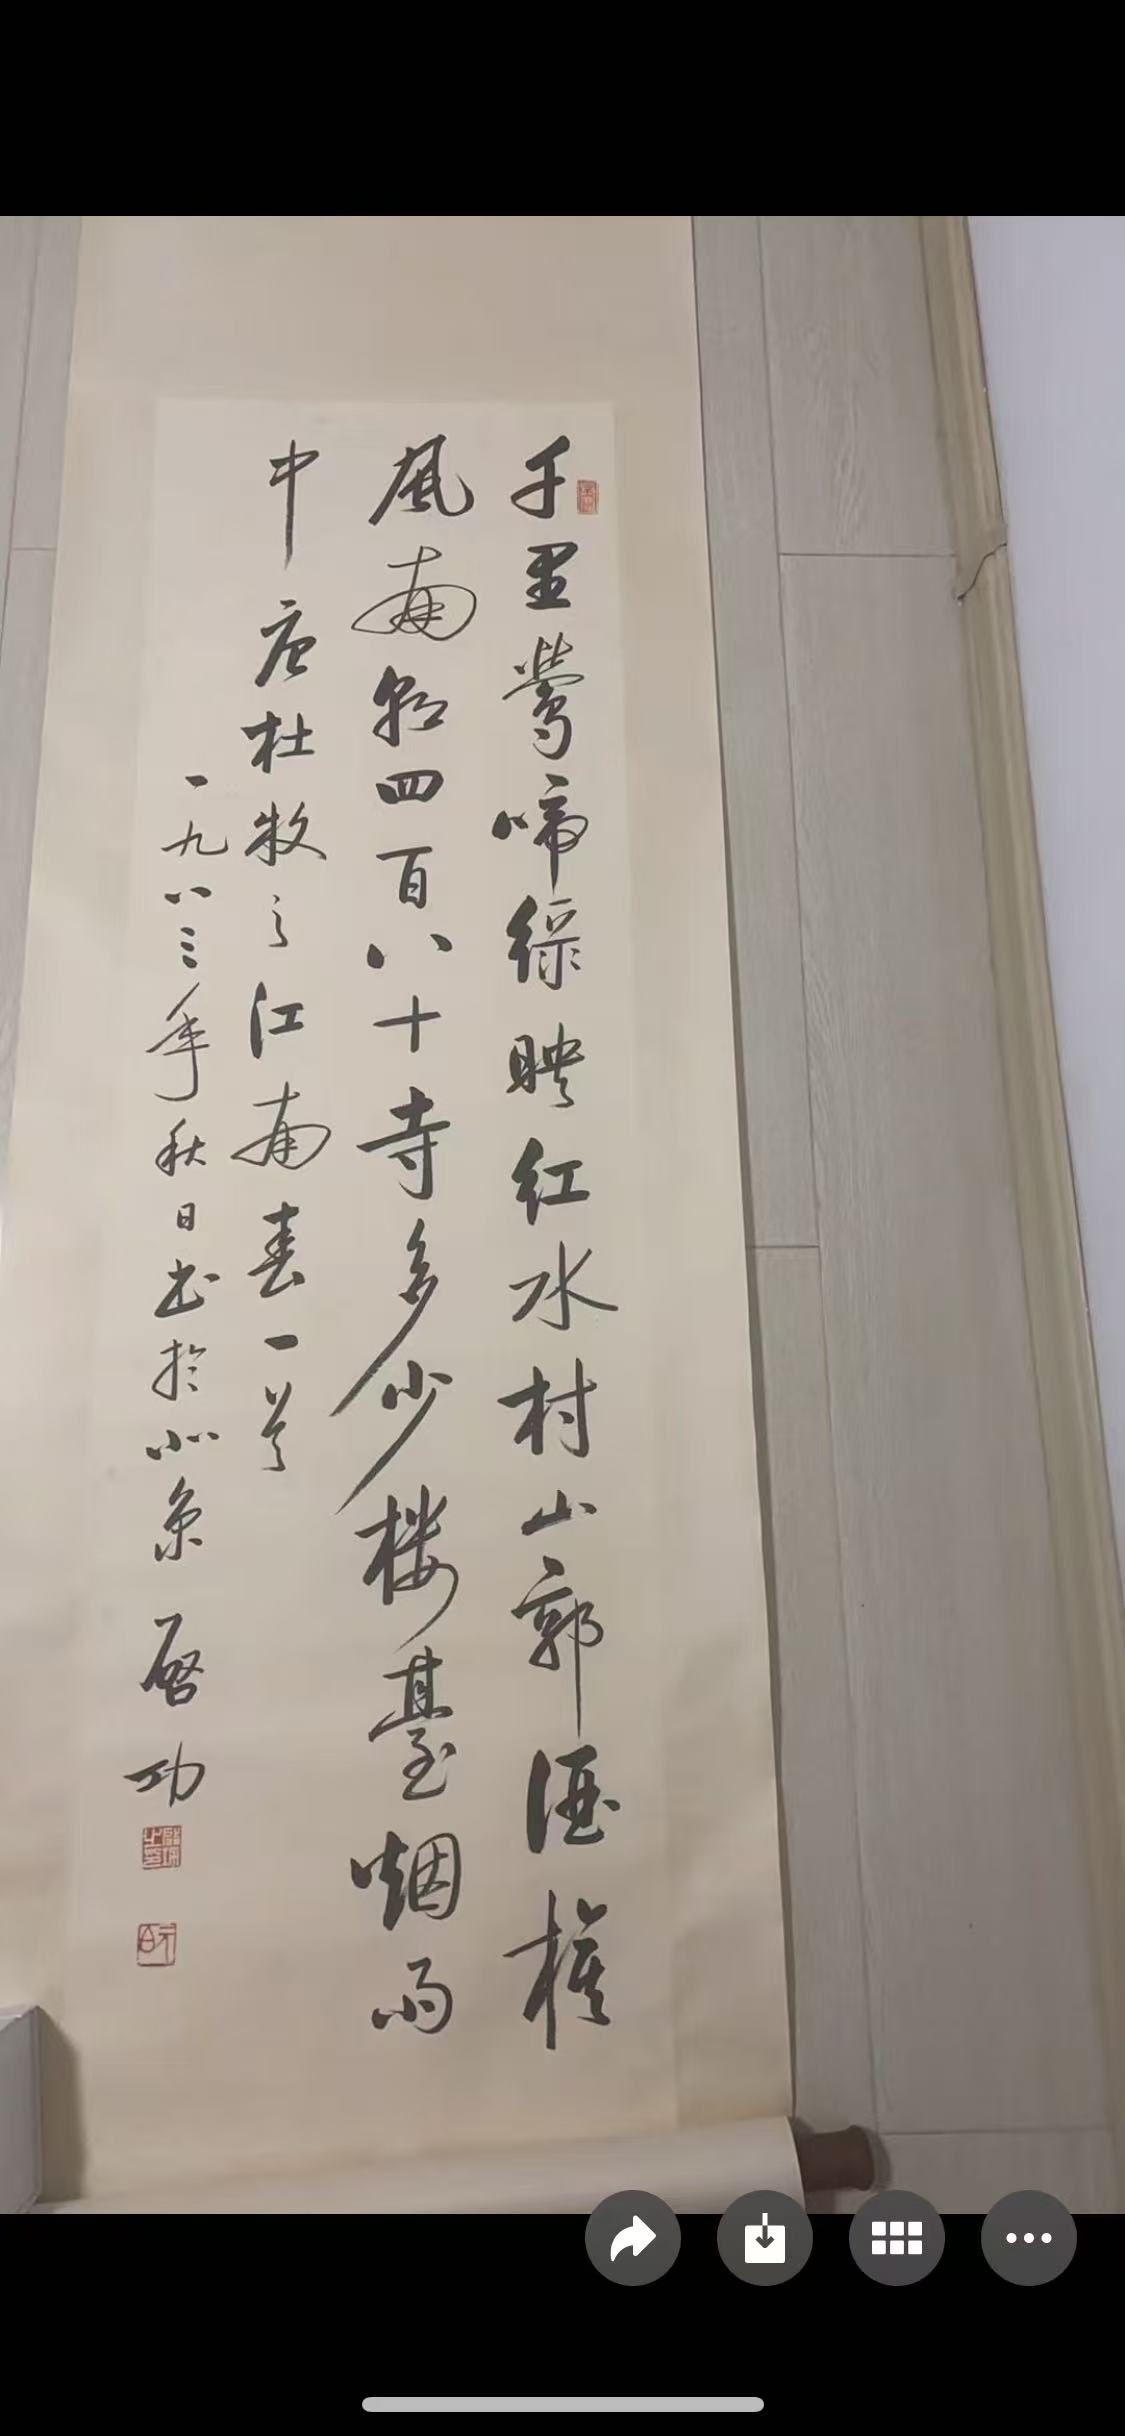 千里鶯啼綠映紅水村山郭酒旗
風南朝四百八十寺多少樓臺烟雨
中 唐杜牧之江南春一首
一九八三年秋日书於北京 啓功
啟功之印
元白